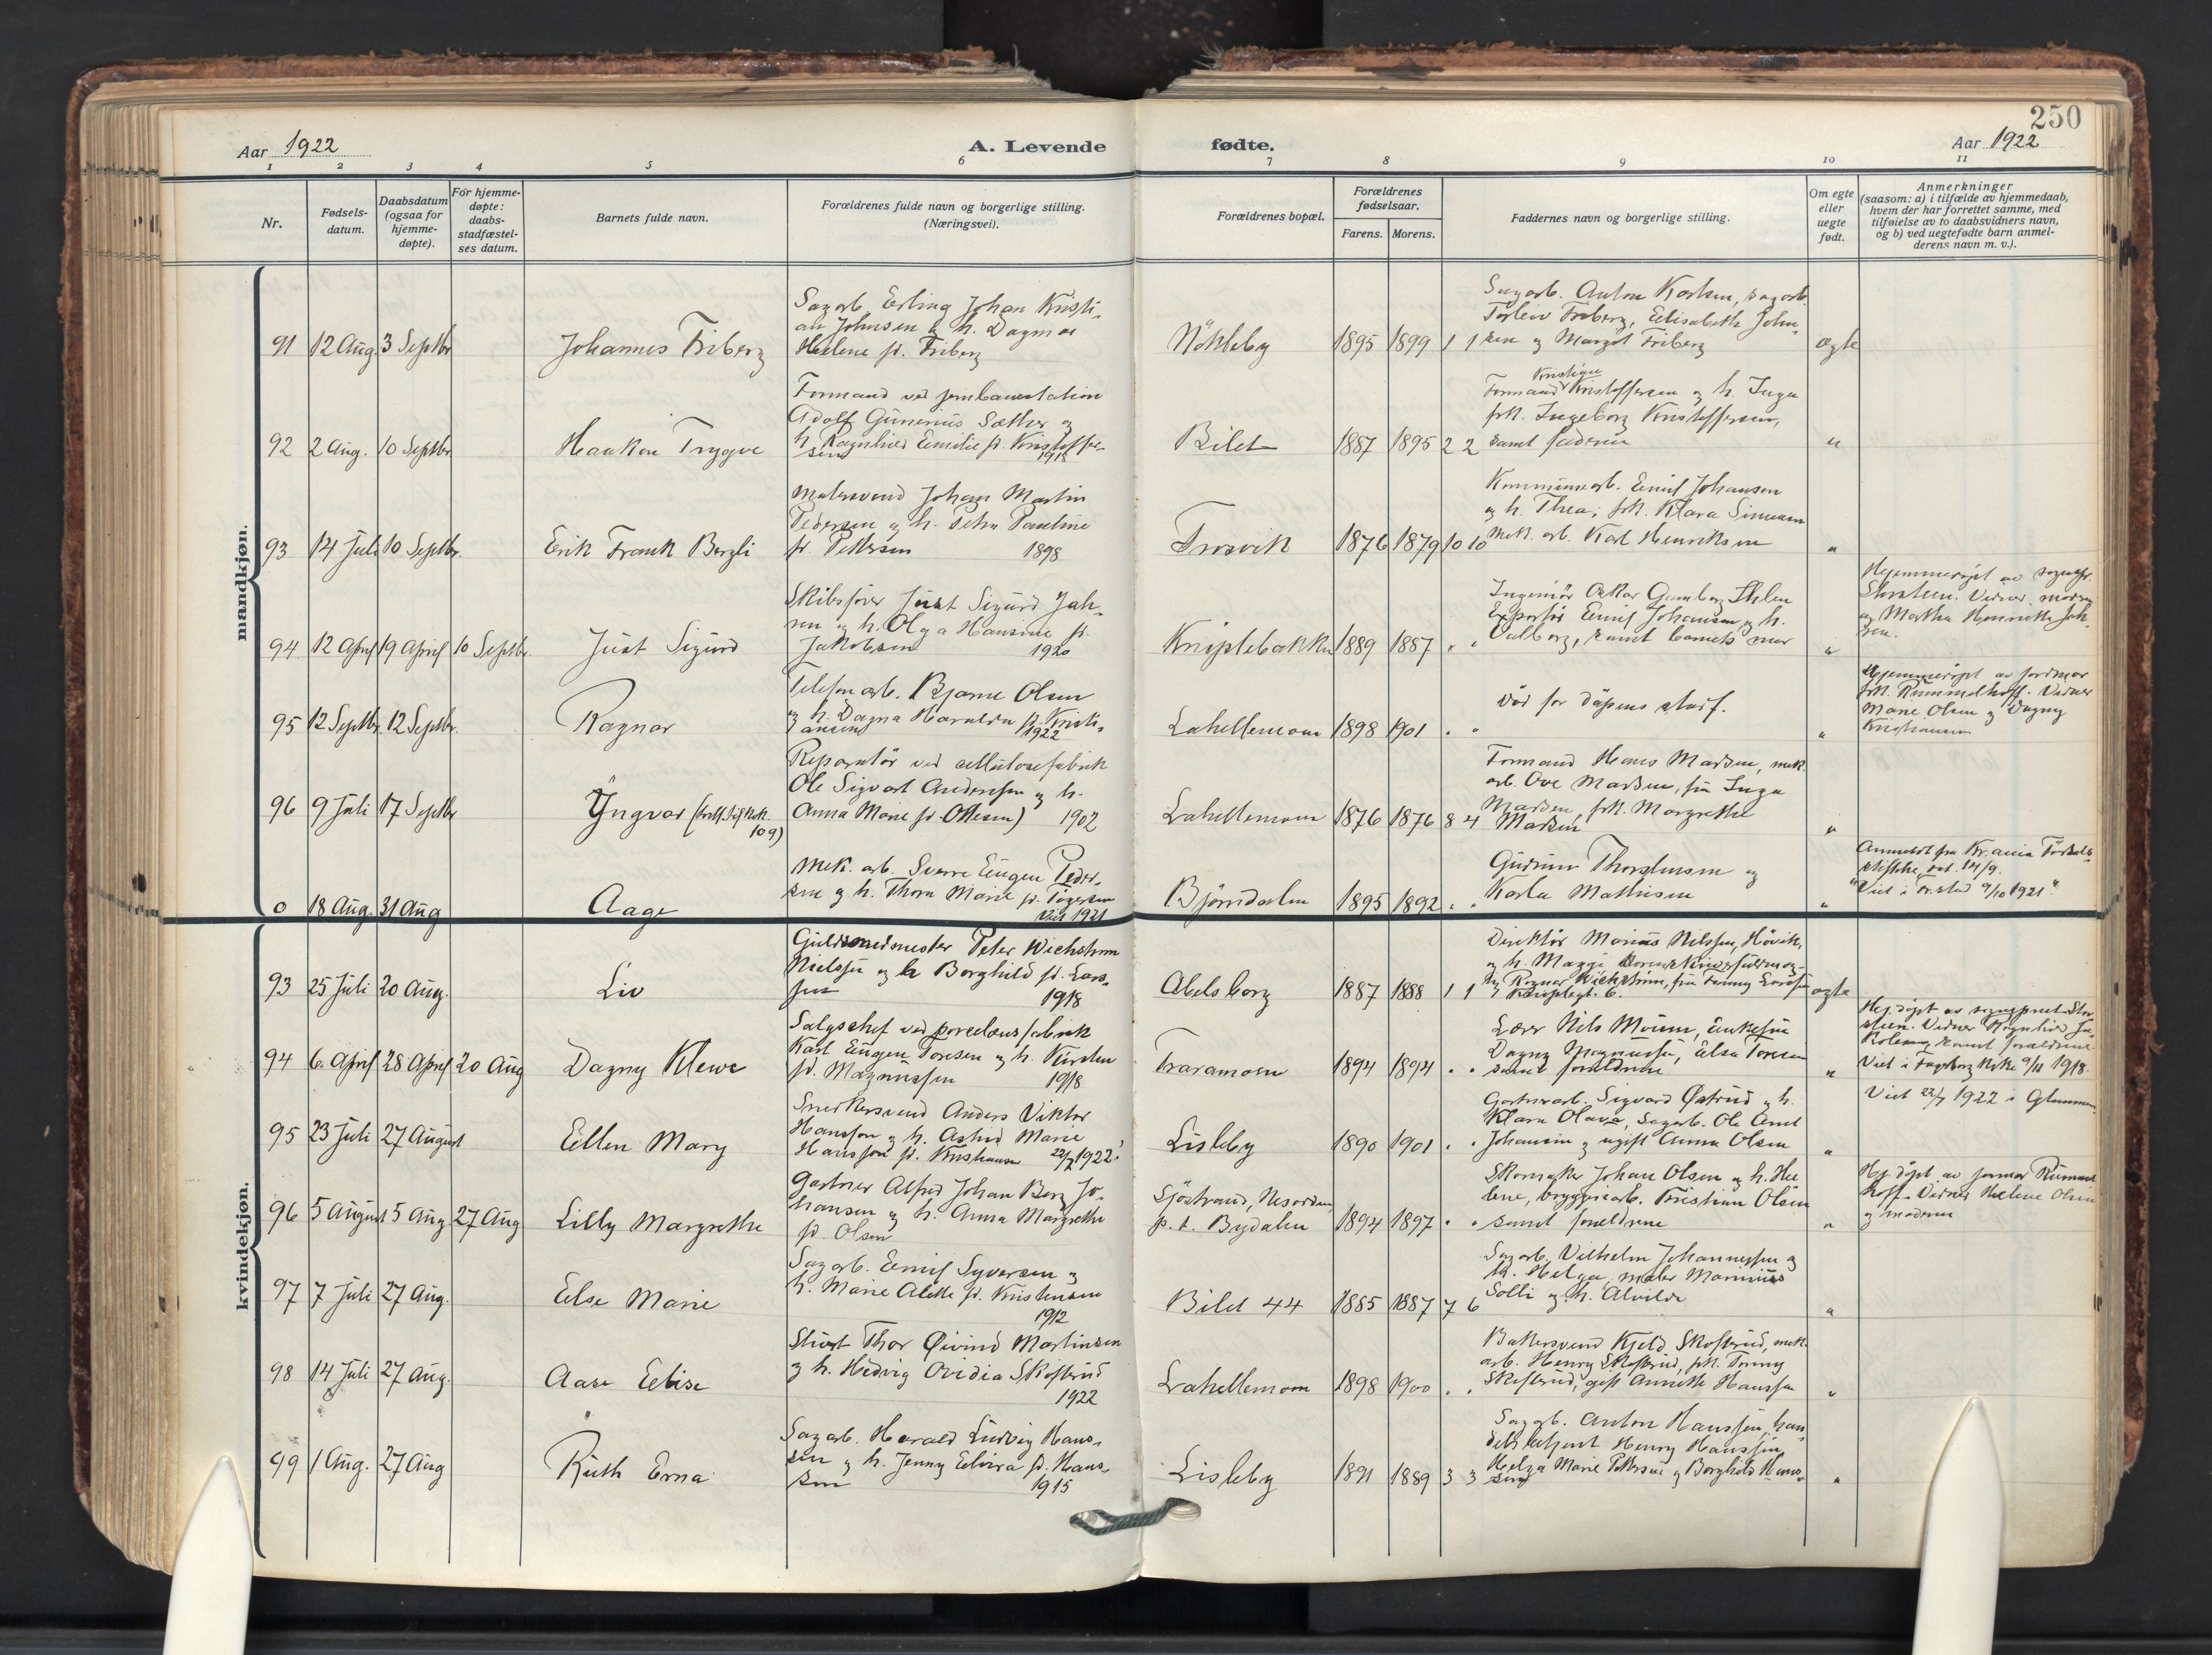 250
Aar 1922
A. Levende
fødte.
Aar 1922
1 2 3 4 5 6 7 8 9 10 11
Nr.
Fødsels-
datum.
Daabsdatum
(ogsaa for
hjemme-
døpte).
For hjemme-
døpte:
daabs-
stadfæstel-
ses datum.
Barnets fulde navn.
Forældrenes fulde navn og borgerlige stilling.
(Næringsvei).
Forældrenes bopæl.
Forældrenes
fødselsaar.
Farens. Morens.
Faddernes navn og borgerlige stilling.
Om egte
eller
uegte
født.
Anmerkninger
(saasom: a) i tilfælde av hjemmedaab,
hvem der har forrettet samme, med
tilføielse av to daabsvidners navn,
og b) ved uegtefødte barn anmel-
derens navn m. v.).
mandkjøn.
91 12 Aug. 3 Septbr Johannes Friberg
Sagarb. Erling Johan Kristi-
an Johnsen & h. Dagmar
Helene f. Friberg
Nökleby 1895 1899 1 1
Sagarb. Anton Karlsen, sagarb.
Torleiv Friberg, Elisabeth John-
sen og Margit Friberg
ægte
92 2 Aug. 10 Septbr Haakon Trygve
Formand ved jernbanestation
Adolf Gunerius Sæther og
h. Ragnhild Emilie f. Kristoffer-
sen 1918
Bilet 1887 1895 2 2
Kristian
Formand Kristoffersen og h. Inga
frk. Ingeborg Kristoffersen,
samt faderen
"
93 14 Juli 10 Septbr. Erik Frank Bergli
Malersvend Johan Martin
Pedersen og h. Petra Pauline
f. Pettersen 1898
Trosvik 1876 1879 10 10
Kommunearb. Emil Johansen
og h. Thea; frk. Klara Simensen
Mek. arb. Karl Henriksen
"
94 12 April 19 April 10 Septbr. Just Sigurd
Skibsfører Just Sigurd Jah-
sen og h. Olga Hansine f.
Jakobsen 1920
Kniplebakken 1889 1887 " "
Ingeniör Oskar Gamborg Ihlen
Exportör Emil Johansen og h.
Valborg, samt barnets mor
"
Hjemmedøpt av sognepr.
Storsteen. Vidner moren
og Martha Henriette Jah-
sen.
95 12 Septbr. 12 Septbr. Ragnar
Telefonarb. Bjarne Olsen
og h. Dagna Haralda f. Kristi-
ansen 1922
Lahellemoen 1898 1901 " "
Död før dåpens stadf.
"
Hjemmedøpt av jordmor
frk. Rummelhoff. Vidner
Marie Olsen og Dagny
Kristiansen
96 9 Juli 17 Septbr Yngvar
109)
Reparatör ved cellulosefabrik
Ole Sigvart Andersen og h.
Anna Marie f. Ottesen) 1902
Lahellemoen 1876 1876 8 4
Formand Hans Madsen, mek.
arb. Ove Madsen, fru Inga
Madsen, frk. Margrethe
Madsen
"
0 18 Aug. 31 Aug Aage
Mek. arb. Sverre Eugen Peder-
sen og h. Thora Marie f. Tøgersen
Viet 1921
Björndalen 1895 1892 " "
Gudrun Thorstensen og
Karla Mathisen
"
Anmeldt fra Kr.ania Födsels-
stiftelse, 14/9.
"Viet i Onsø 9/10 1921"
kvindekjøn.
93 25 Juli 20 Aug. Liv
Guldsmedmester Peter Wichstrøm
Nielssen og h Borghild f. Lars-
sen 1918
Abelsborg 1887 1888 1 1
Direktör Marius Nilssen, Hövik,
og h. Maggi
Ragnar Wichstrøm, fru Fanny Larssen
Kniplegt. 6.
ægte
94 6. April 28 April 20 Aug Dagny Klewe
Salgschef ved porcelænsfabrik
Karl Eugen Toresen og h. Kirsten
f. Magnussen 1918
Traramoen 1894 1894 " "
Lærer Nils Moum, enkefru
Dagny Magnussen, Elsa Toresen
samt foreldrene
"
Hj. døpt av sogneprest Stor-
steen. Vidner Ragnhild
samt foreldrene
Viet i Fagerborg Kirke 9/11 1918.
95 23 Juli 27 August Ellen Mary
Snekkersvend Anders Viktor
Hansson og h. Astrid Marie
Hansson f. Kristiansen 22/7 1922.
Lisleby 1890 1901 " "
Gartnerarb. Sigvard Østrud og h.
Klara Olava, Sagarb. Ole Anel
Johansen og ugift Anna Olsen
"
Viet 22/7 1922 i Glemmen
96 5 August 5 Aug 27 Aug Lilly Margrethe
Gartner Alfred Johan Berg Jo-
hansen og h. Anna Margrethe
f. Olsen
Sjöstrand, Nesodden
p. t. Brydalen 1894 1897 " "
Skomaker Johan Olsen og h. He-
lene, bryggeriarb. Kristian Olsen
samt foreldrene
"
Hj. døpt av jormor Rummel-
hoff. Vidner Helene Olsen
og moderen
97 7 Juli 27 Aug. Else Marie
Sagarb. Emil Syversen og
h. Marie Alette f. Kristensen
1912
Bilet 44 1885 1887 7 6
Sagarb. Vilhelm Johannessen og
h. Helga, maler Marinius
Solli og h. Alvilde
"
98 14 Juli 27 Aug. Aase Elise
Stuert Thor Øivind Martinsen
og h. Hedvig Ovidia Skofterud
1922
Lahellemoen 1898 1900 " "
Bakersvend Kjeld Skofterud, mek.
arb. Henry Skofterud, frk. Fanny
Skofterud, gift Annette Hanssen
"
99 1 Aug. 27 Aug Ruth Erna
Sagarb. Harald Ludvig Hans-
sen og h. Jenny Elvira f. Hans-
sen 1915
Lisleby 1891 1889 3 3
Sagarb. Anton Hanssen, han-
delsbetjent Henry Hanssen,
Helga Marie Pettersen og Borghild Hans-
sen
"